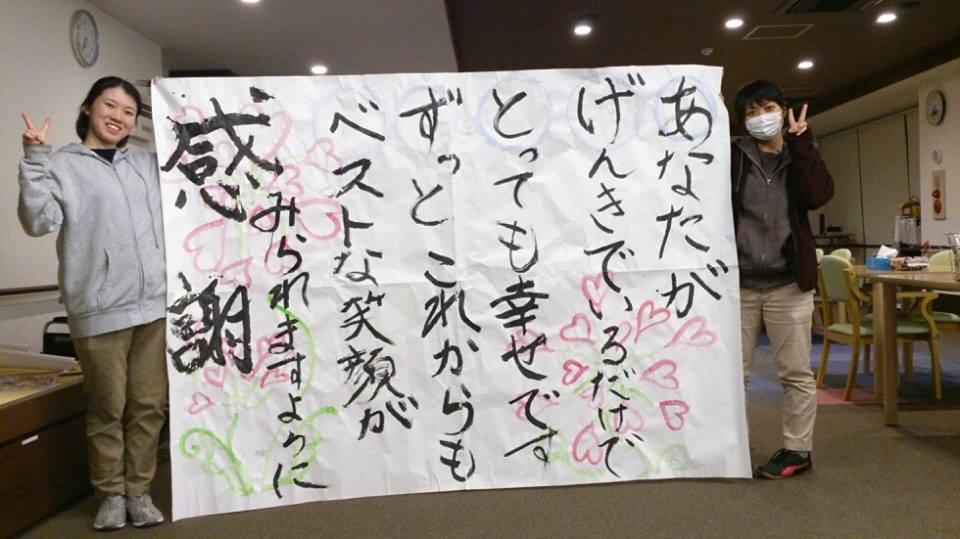 あなたが
げんきでいるだけで
とっても幸せです
ずっとこれからも
ベストな笑顔が
みられますように
感謝